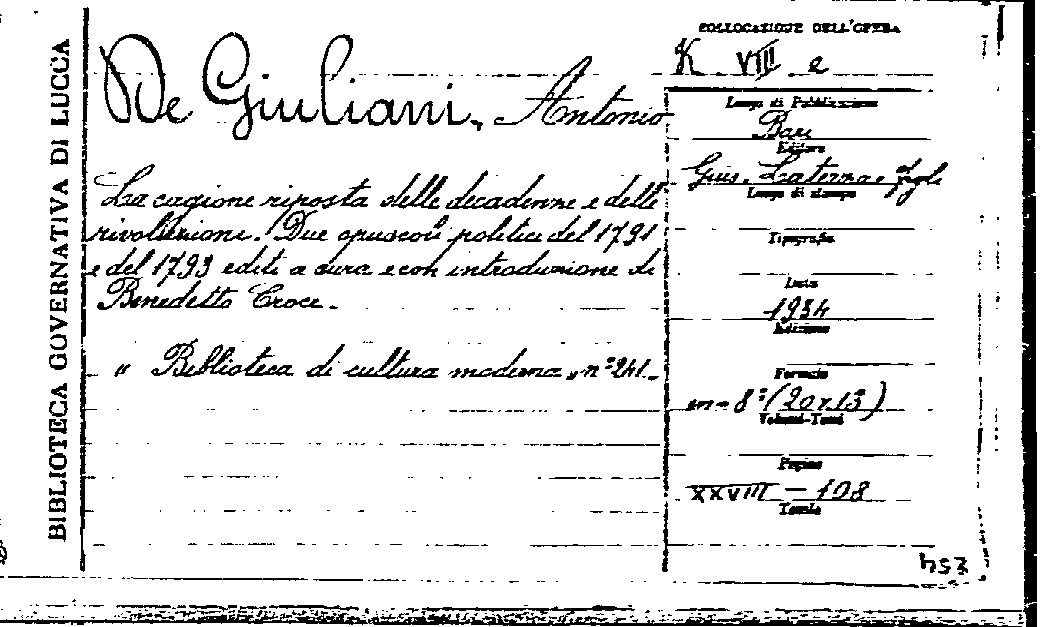 BIBLIOTECA GOVERNATIVA DI LUCCA
De Giuliani, Antonio
La cagione riposta delle decadenze e delle
rivoluzioni. Due opuscoli politici del 1791
e del 1793 editi a cura e con introduzione di
Benedetto Croce.
" Biblioteca di cultura moderna „ n° 241.
COLLOCAZIONE DELL'OPERA
K VIII e
Luogo di Pubblicazione
Bari
Editore
Gius. Laterza e figli
Luogo di stampa
Tipografia
Data
1934
Edizione
Formato
in-8° (20x13)
Volumi-Tomi
Pagine
XXVIII - 108
Tavole